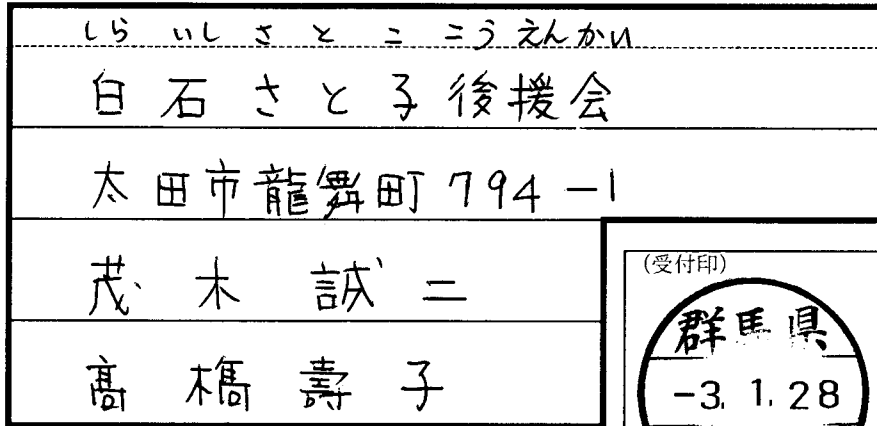 しらいしさとここうえんかい
白石さと子後援会
太田市龍舞町794-1
茂木誠二
髙橋壽子
(受付印)
群馬県
-3.1.28